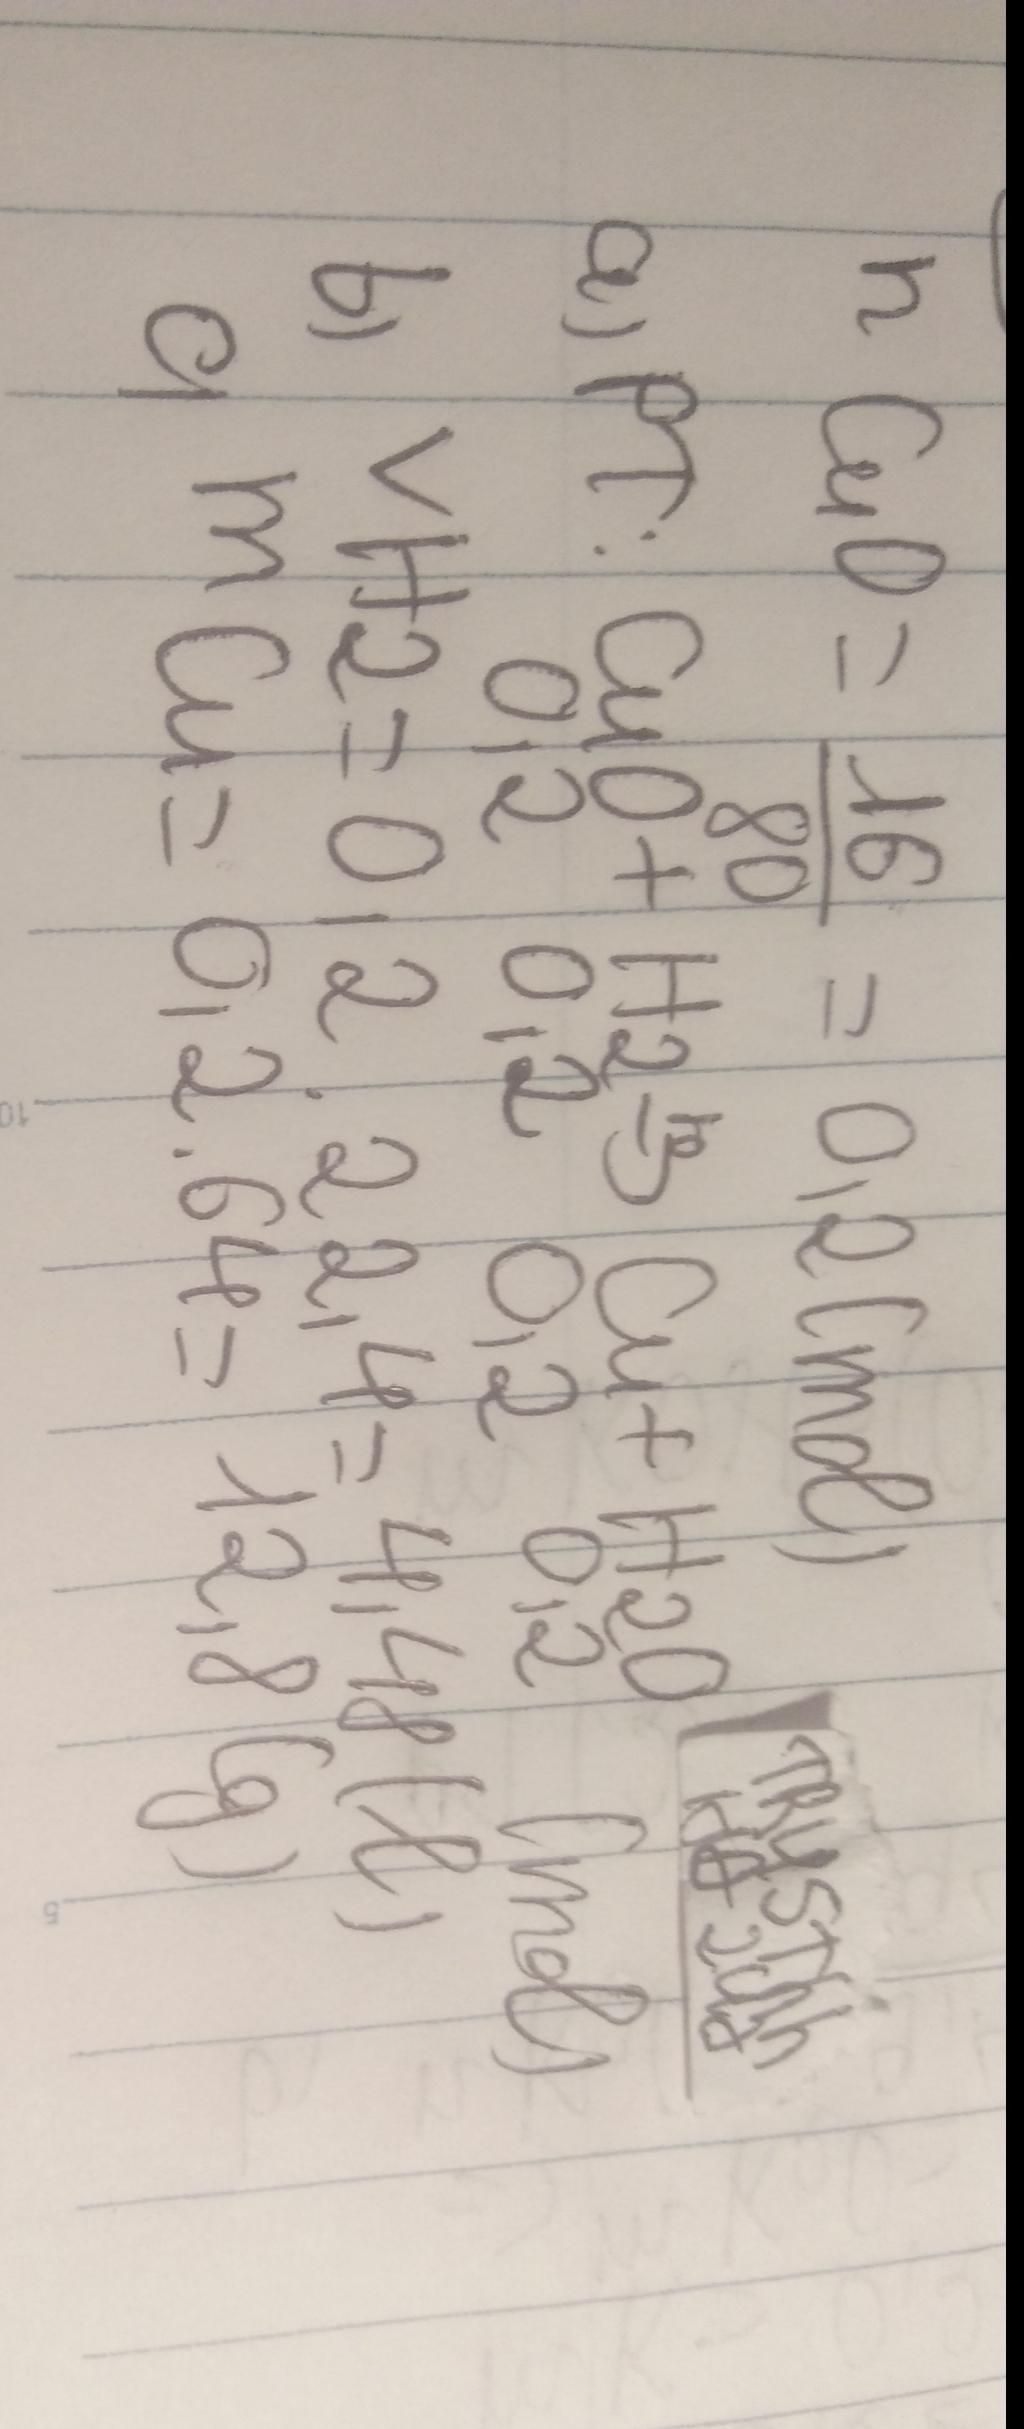 n CuO = 16/80 = 0,2 (mol)
a, PT: CuO + H2 -to-> Cu + H2O
0,2 0,2 0,2 0,2 (mol)
b, VH2 = 0,2 . 22,4 = 4,48 (l)
c, m Cu = 0,2 . 64 = 12,8 (g)
10
5